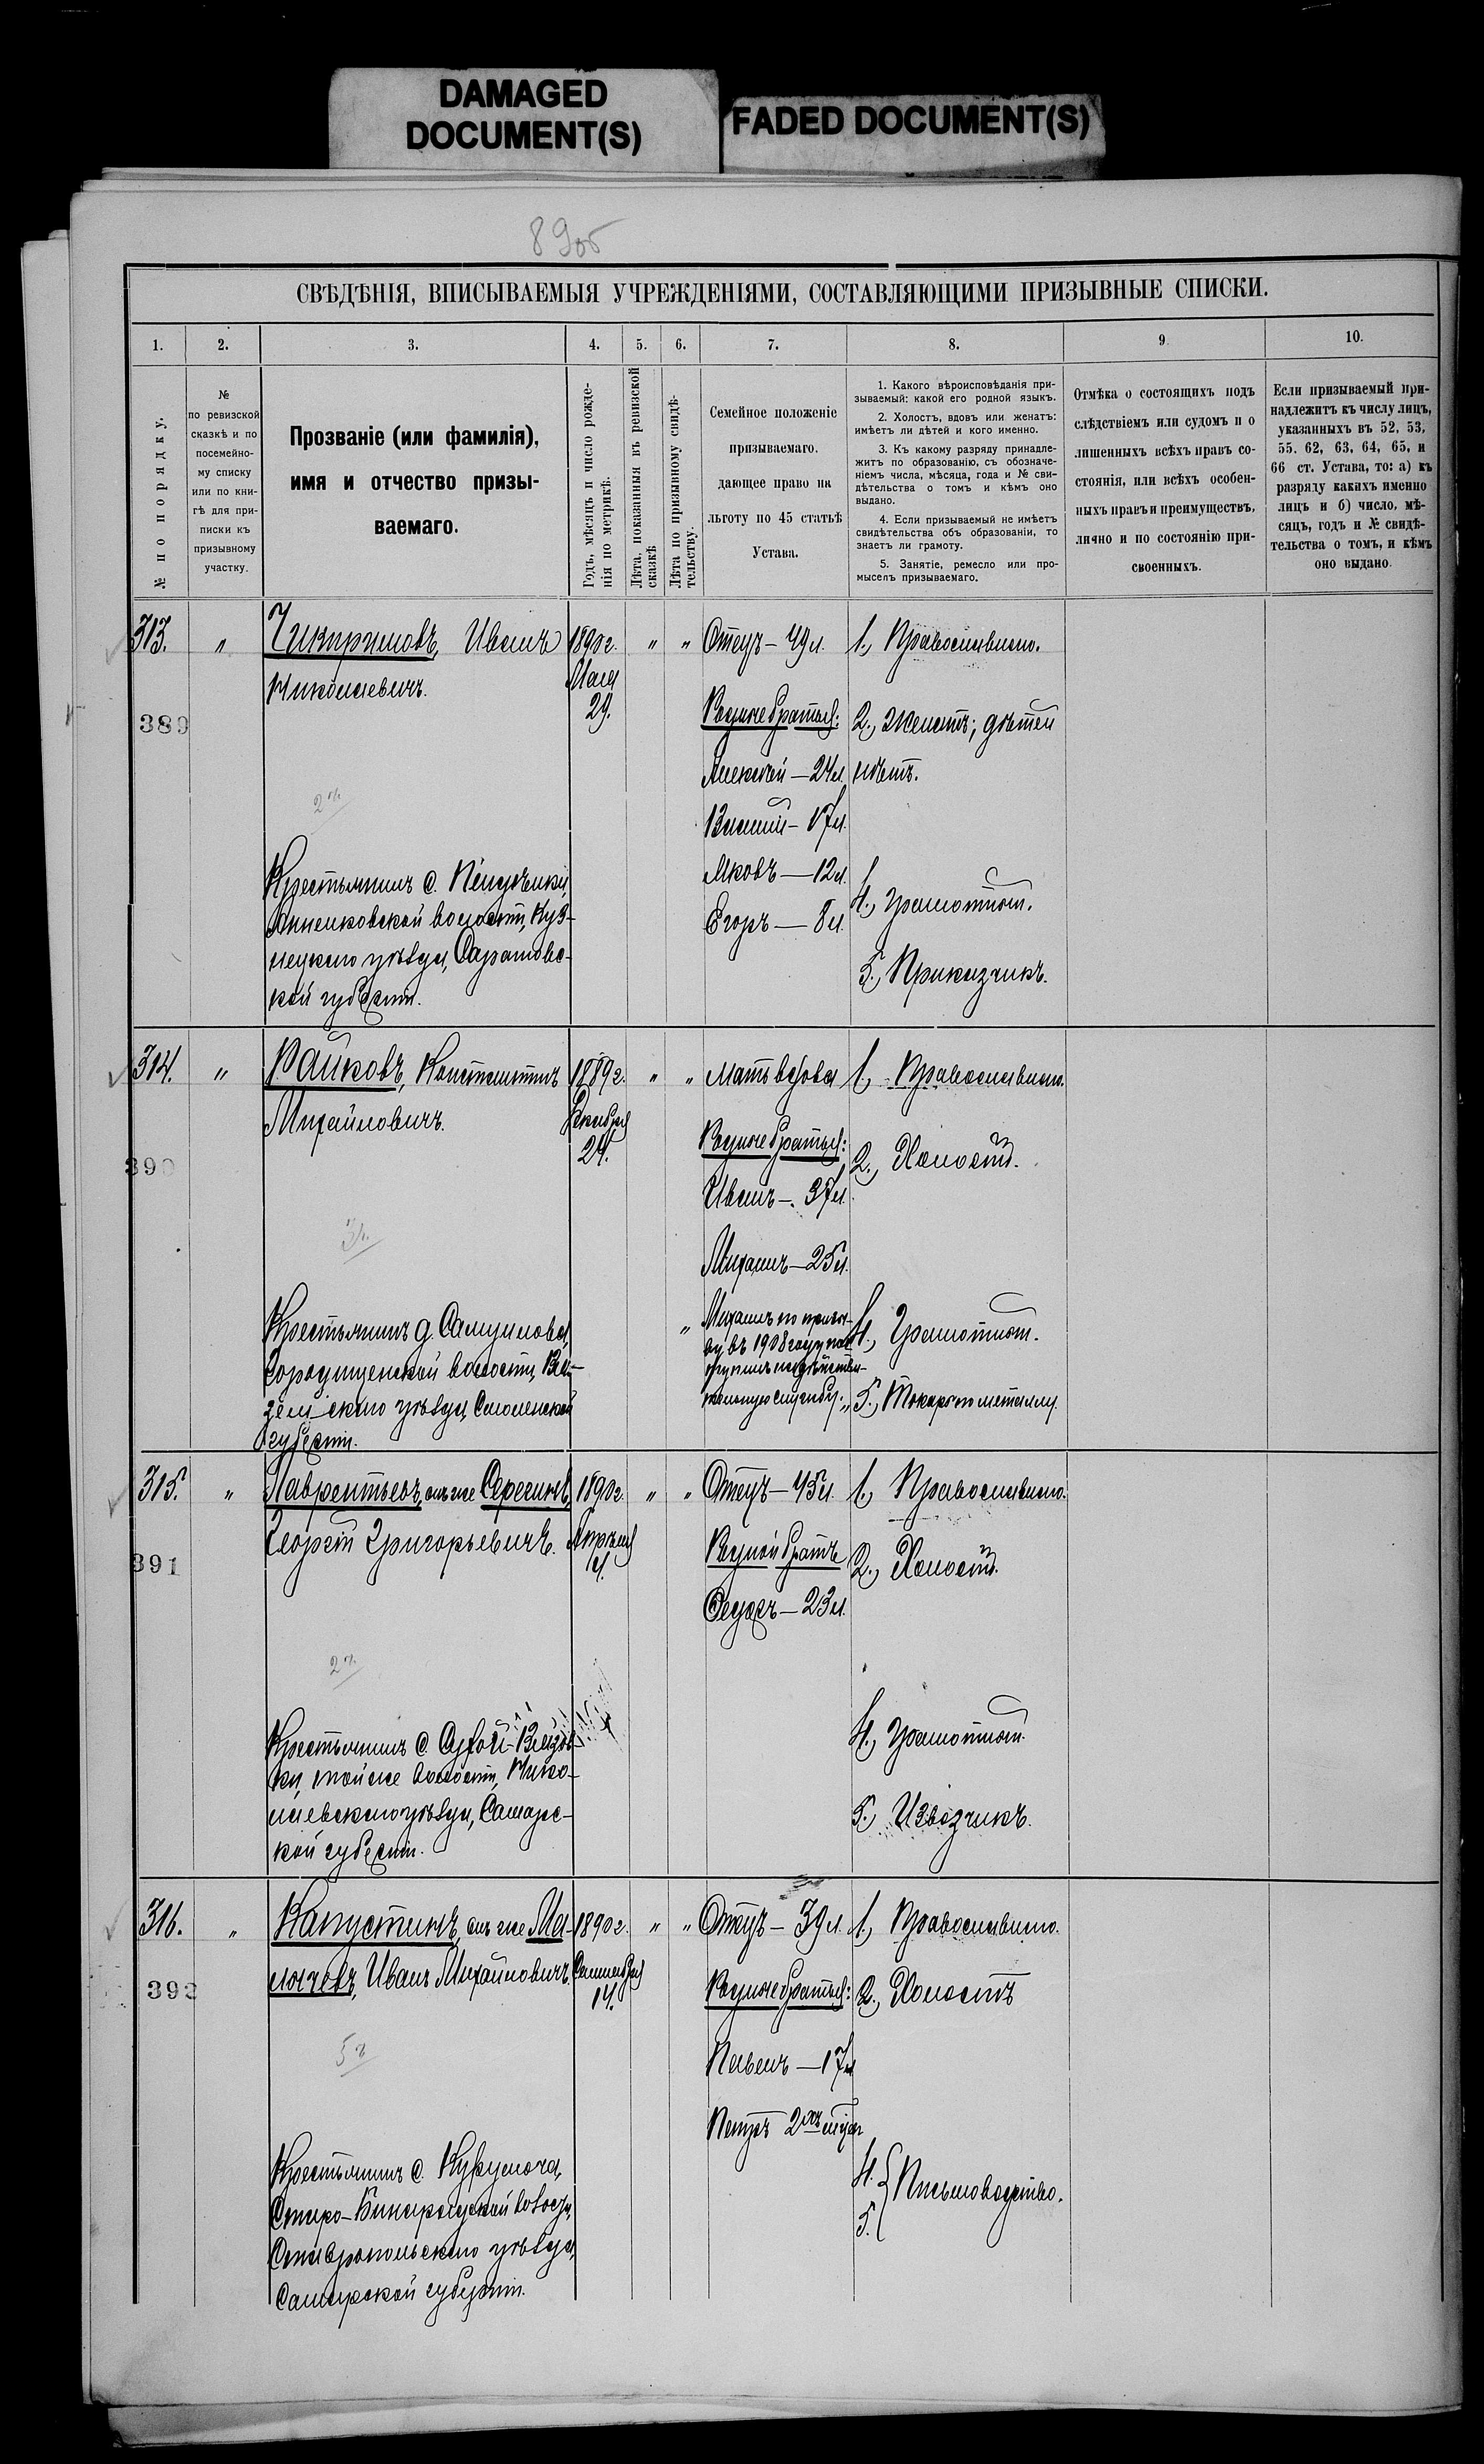 DAMAGED
DOCUMENT(S)
FADED DOCUMENT(S)
89об
СВѢДѢНІЯ, ВПИСЫВАЕМЫЯ УЧРЕЖДЕНІЯМИ, СОСТАВЛЯЮЩИМИ ПРИЗЫВНЫЕ СПИСКИ.
1.
2.
3.
4.
5.
6.
7.
8.
9
10.
№ по порядку.
№
по ревизской
сказкѣ и по
посемейно-
му списку
или по кни-
гѣ для при-
писки къ
призывному
участку.
Прозваніе (или фамилія),
имя и отчество призы-
ваемаго.
Годъ, мѣсяцъ и число рожде-
нія по метрикѣ.
Лѣта, показанныя въ ревизской
сказкѣ
Лѣта по призывному свидѣ-
тельству.
Семейное положеніе
призываемаго.
дающее право на
льготу по 45 статьѣ
Устава.
1. Какого вѣроисповѣданія при-
зываемый: какой его родной языкъ.
2. Холостъ, вдовъ или женатъ:
имѣетъ ли дѣтей и кого именно.
3. Къ какому разряду принадле-
житъ по образованію, съ обозначе-
ніемъ числа, мѣсяца, года и № сви-
дѣтельства о томъ и кѣмъ оно
выдано.
4. Если призываемый не имѣетъ
свидѣтельства объ образованіи, то
знаетъ ли грамоту.
5. Занятіе, ремесло или про-
мыселъ призываемаго.
Отмѣка о состоящихъ подъ
слѣдствіемъ или судомъ и о
лишенныхъ всѣхъ правъ со-
стоянія, или всѣхъ особен-
ныхъ правъ и преимуществъ,
лично и по состоянію при-
своенныхъ.
Если призываемый при-
надлежитъ къ числу лицъ,
указанныхъ въ 52, 53,
55. 62, 63, 64, 65, и
66 ст. Устава, то: а) къ
разряду какихъ именно
лицъ и б) число, мѣ-
сяцъ, годъ и № свидѣ-
тельства о томъ, и кѣмъ
оно выдано.
313.
"
Иванъ
Николаевичъ.
389
Крестьянинъ с.
Анненковской волости, Куз-
нецкаго уѣзда, Саратовс-
кой губерніи.
1890 г.
Мая
29.
"
"
Отецъ — 49 л.
Родные братья:
Алексѣй — 24 л.
Василій — 17 л.
Яковъ — 12 л.
Егоръ — 8 л.
1., Православнаго.
2., Женатъ; дѣтей
нѣтъ.
4., Грамотный.
5., Приказчикъ.
314.
"
Райковъ, Константинъ
Михайловичъ.
390
Крестьянинъ д. Самуилова,
Городищенской волости, Вя-
земскаго уѣзда, Смоленской
губерніи.
1889 г.
Декабря
24.
"
"
Мать вдова
Родные братья:
Иванъ — 37 л.
Михаилъ — 25 л.
" Михаилъ по призы-
ву въ 1908 году пос-
тупилъ на дѣйстви-
тельную службу. "
1., Православнаго.
2., Холостъ.
4., Грамотный.
5., Токарь по металлу.
315.
"
Лаврентьевъ, онъ же Серегинъ,
Георгій Григорьевичъ.
391
Крестьянинъ с. Сухой-Вязов-
ки, той же волости, Нико-
лаевскаго уѣзда, Самарс-
кой губерніи.
1890 г.
Апрѣля
"
"
Отецъ — 45 л.
Родной братъ
Федоръ — 23 л.
1., Православнаго.
2., Холостъ.
4., Грамотный.
5., Извозчикъ.
316.
"
Капустинъ, онъ же Ма-
Иванъ Михайловичъ.
392
Крестьянинъ с. Курумоча,
Старо-Бинарадской волости,
Ставропольскаго уѣзда,
Самарской губерніи.
1890 г.
Сентября
14.
"
"
Отецъ — 39 л.
Родные братья:
Павелъ — 17 л.
Петръ 2хъ лѣтъ
1., Православнаго.
2., Холостъ
4.
5. Письмоводство.